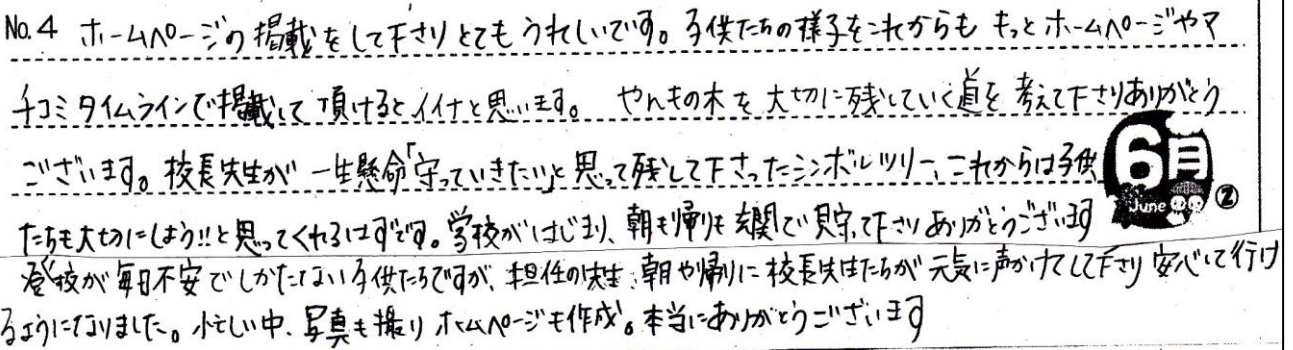 No.4 ホームページの掲載をして下さりとてもうれしいです。子供たちの様子をこれからももっとホームページやマ
チコミタイムラインで掲載して頂けるとイイナと思います。 やんもの木を大切に残していく道を考えて下さりありがとう
ございます。校長先生が一生懸命「守っていきたい」と思って残して下さったシンボルツリー、これからは子供
たちも大切にしよう!!と思ってくれるはずです。学校がはじまり、朝も帰りも玄関で見守って下さりありがとうございます
登校が毎日不安でしかたない子供たちですが、担任の先生、朝や帰りに校長先生たちが元気に声かけてして下さり安心して行け
るようになりました。忙しい中、写真も撮りホームページも作成。本当にありがとうございます
6月
June
②